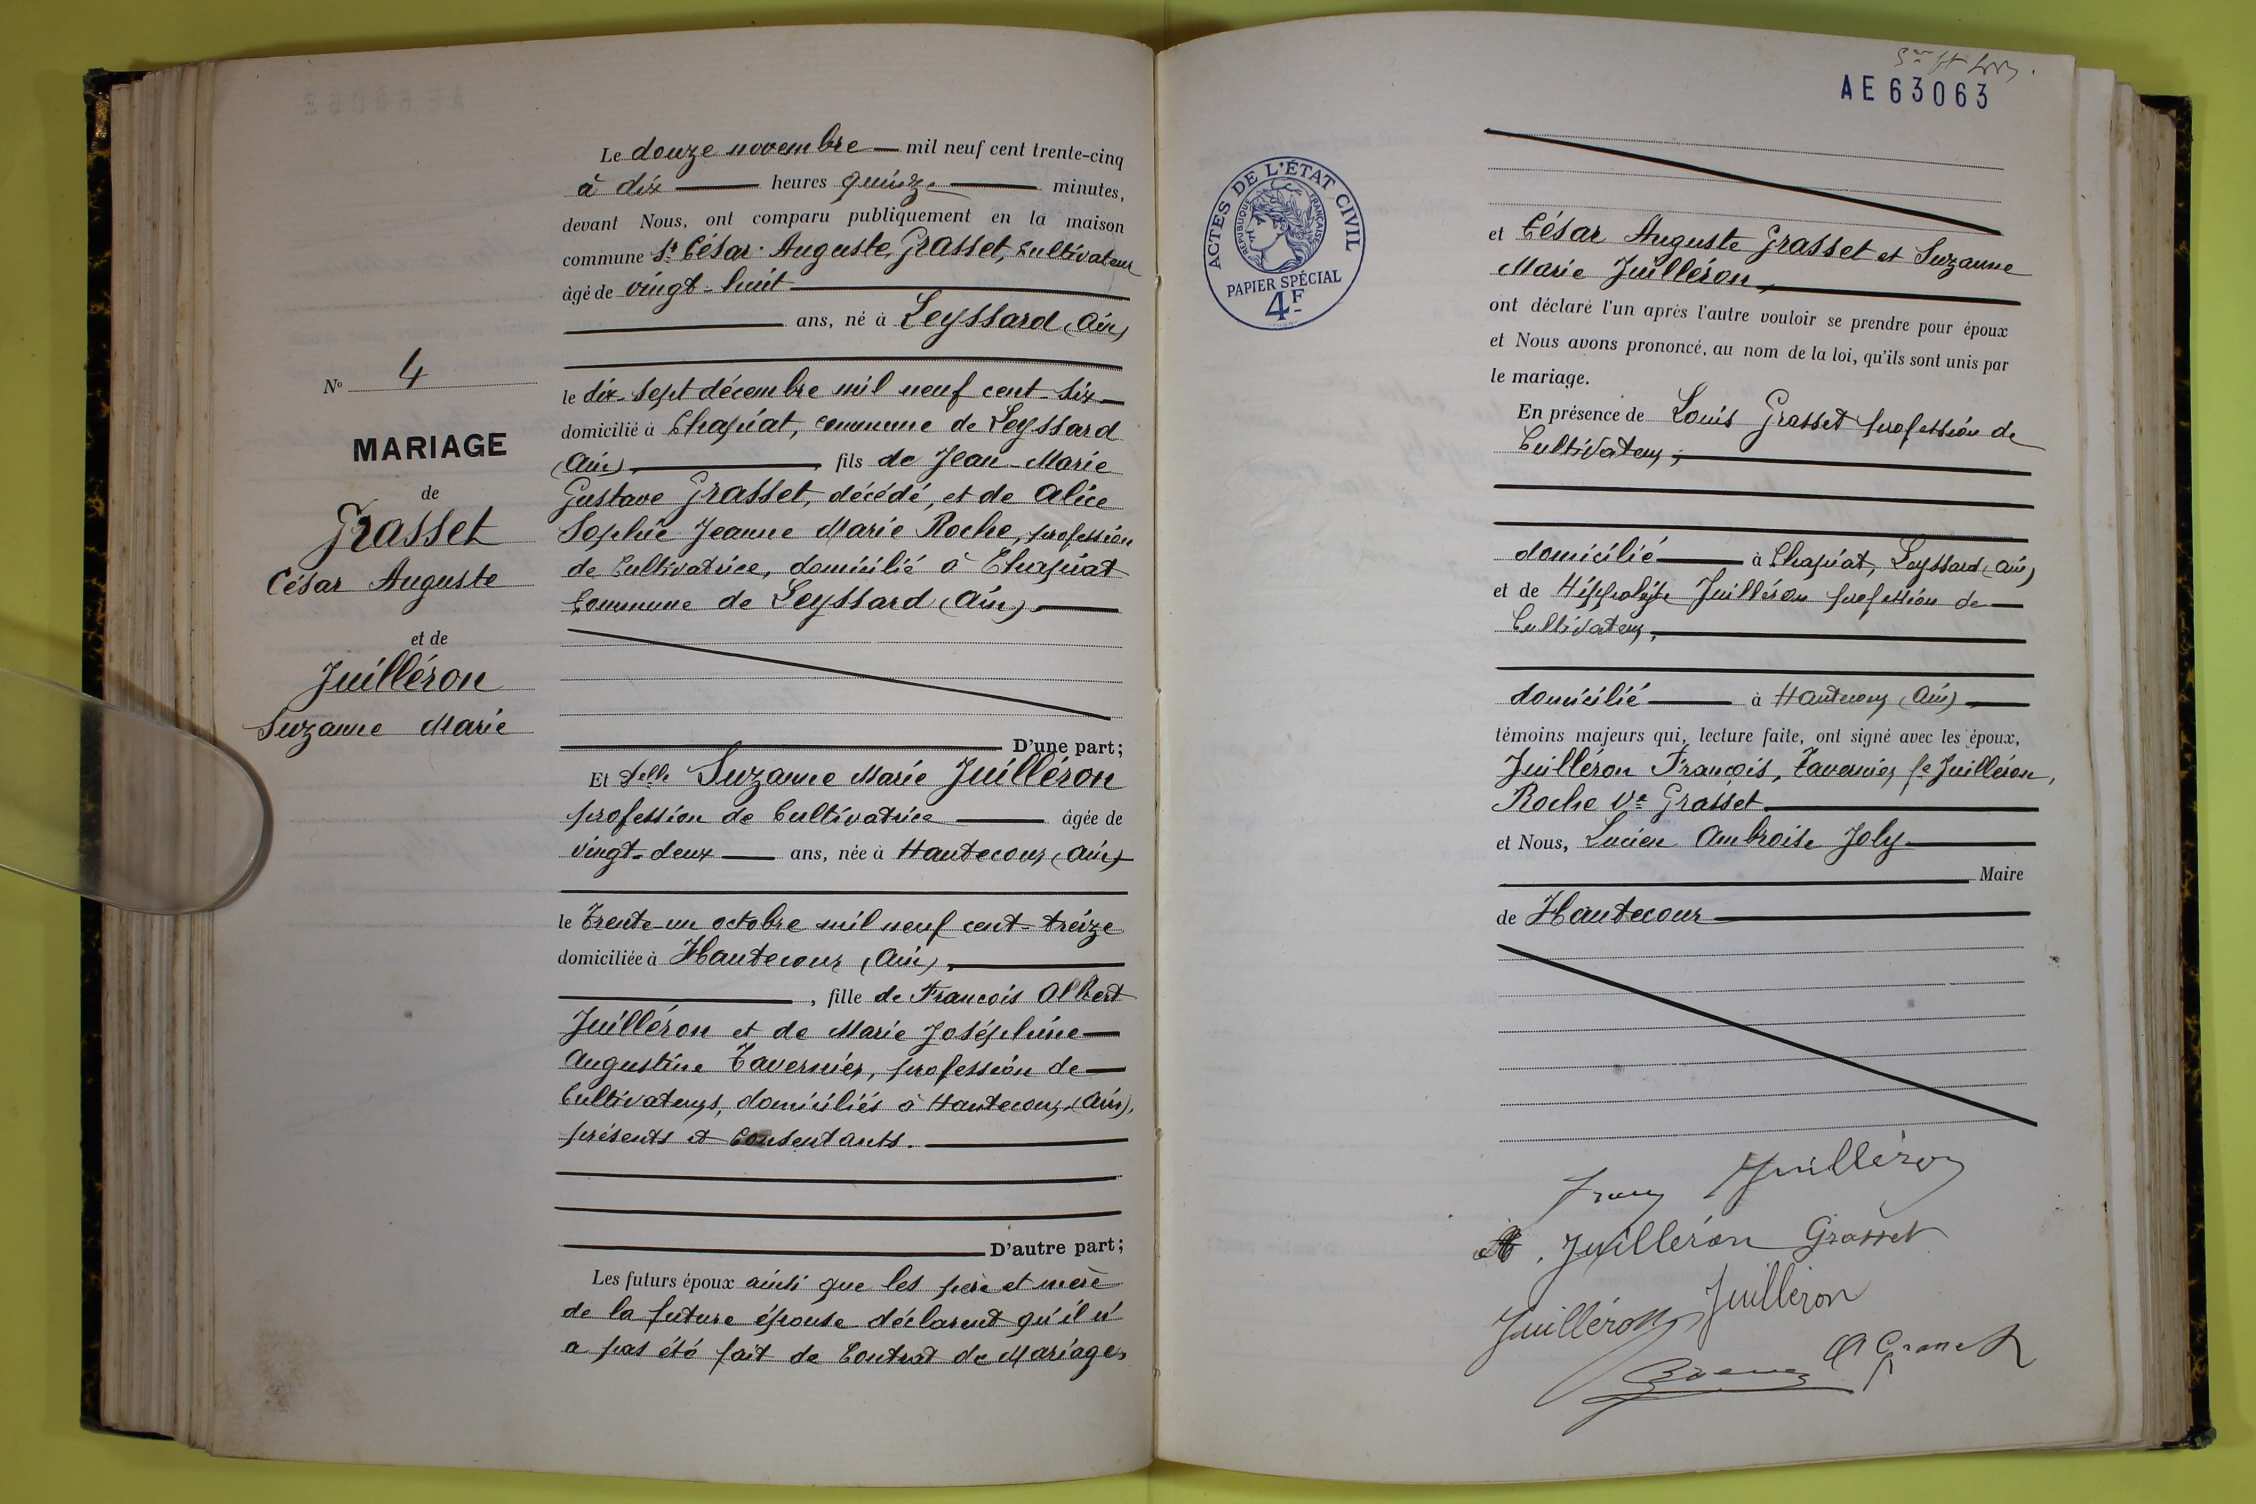 N° 4
MARIAGE
de
Grasset
César Auguste
et de
Juilléron
Suzanne Marie
Le douze novembre mil neuf cent trente-cinq
à dix heures quinze minutes,
devant Nous, ont comparu publiquement en la maison
commune Sr César Auguste Grasset, cultivateur
âgé de vingt-huit
ans, né à Leyssard (Ain)
le dix-sept décembre mil neuf cent-six
domicilié à Chapiat, commune de Leyssard
(Ain), fils de Jean-Marie
Gustave Grasset, décédé, et de Alice
Sophie Jeanne Marie Roche, profession
de Cultivatrice, domicilié à Chapiat
Commune de Leyssard (Ain)
D'une part;
Et Delle Suzanne Marie Juilléron
profession de Cultivatrice âgée de
vingt-deux ans, née à Hautecour (Ain)
le Trente-un octobre mil neuf cent-treize
domiciliée à Hautecour (Ain),
, fille de François Albert
Juilléron et de Marie Joséphine
Augustine Tavernier, profession de
Cultivateurs, domiciliés à Hautecour (Ain),
présents et consentants.
D'autre part;
Les futurs époux ainsi que les père et mère
de la future épouse déclarent qu'il n'
a pas été fait de Contrat de Mariage,
AE 63063
ACTES DE L'ÉTAT CIVIL
RÉPUBLIQUE FRANÇAISE
PAPIER SPÉCIAL
4F
et César Auguste Grasset et Suzanne
Marie Juilléron,
ont déclaré l'un après l'autre vouloir se prendre pour époux
et Nous avons prononcé, au nom de la loi, qu'ils sont unis par
le mariage.
En présence de Louis Grasset profession de
Cultivateur,
domicilié à Chapiat, Leyssard (Ain)
et de Hippolyte Juilléron profession de
Cultivateur,
domicilié à Hautecour (Ain)
témoins majeurs qui, lecture faite, ont signé avec les époux,
Juilléron François, Tavernier fe Juilléron,
Roche Ve Grasset
et Nous, Lucien Ambroise Joly
Maire
de Hautecour
Juilléron
Juilléron Grasset
Juilléron Juilléron